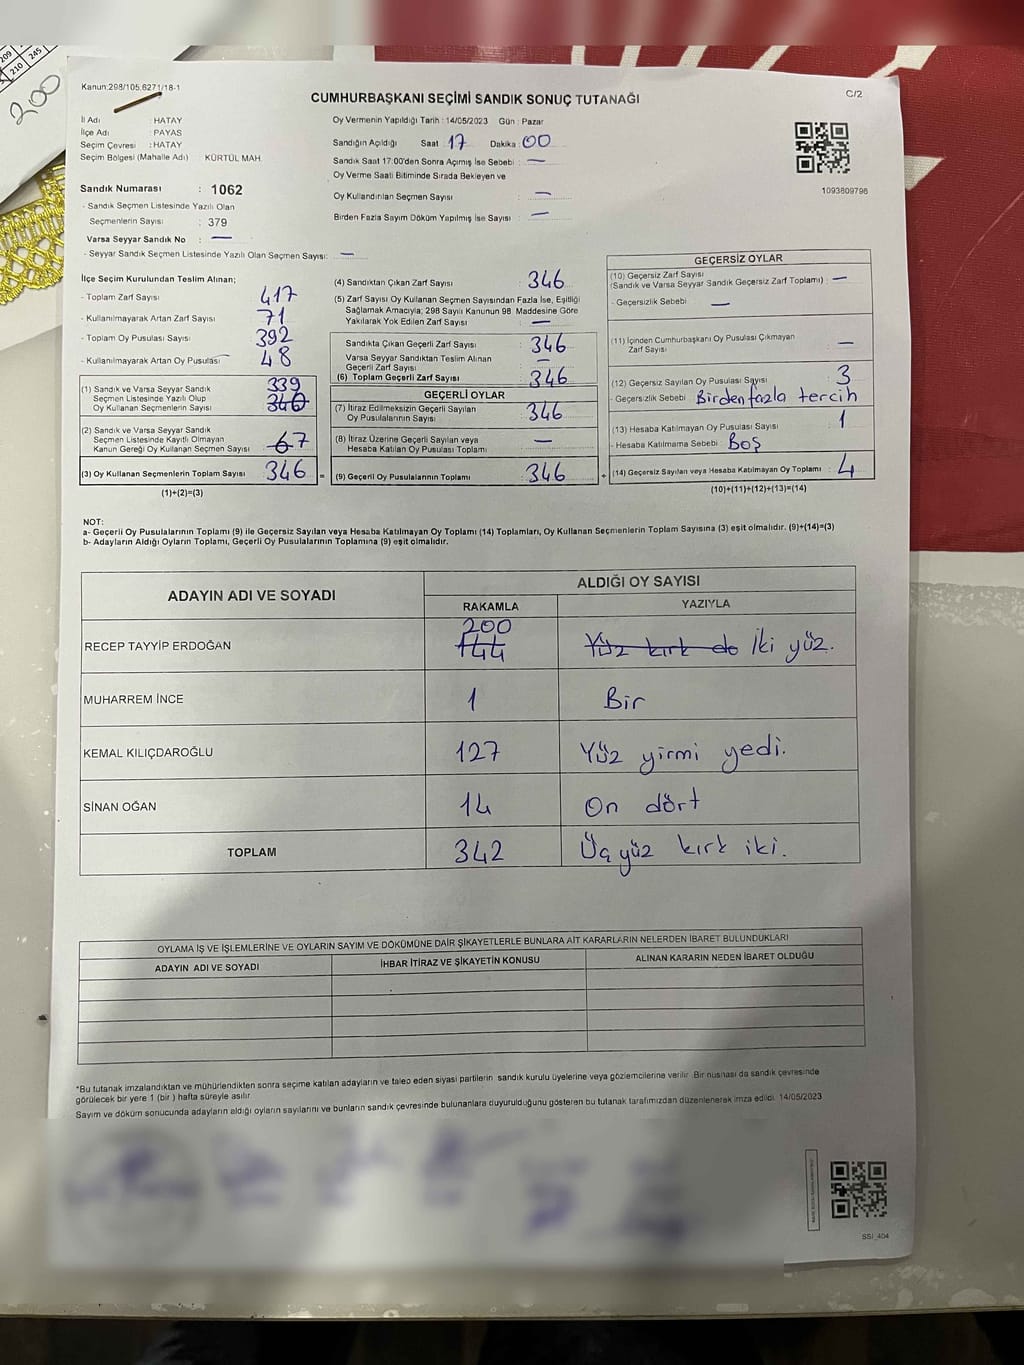 209
210 245
200
Kanun:298/105.6271/18-1
CUMHURBAŞKANI SEÇİMİ SANDIK SONUÇ TUTANAĞI
C/2
İl Adı : HATAY
İlçe Adı : PAYAS
Seçim Çevresi : HATAY
Seçim Bölgesi (Mahalle Adı) KÜRTÜL MAH.
Oy Vermenin Yapıldığı Tarih : 14/05/2023 Gün : Pazar
Sandığın Açıldığı Saat 17 Dakika 00
Sandık Saat 17:00'den Sonra Açımış İse Sebebi : —
Oy Verme Saati Bitiminde Sırada Bekleyen ve
Oy Kullandırılan Seçmen Sayısı : —
Birden Fazla Sayım Döküm Yapılmış İse Sayısı : —
1093809796
Sandık Numarası : 1062
- Sandık Seçmen Listesinde Yazılı Olan
Seçmenlerin Sayısı : 379
Varsa Seyyar Sandık No : —
- Seyyar Sandık Seçmen Listesinde Yazılı Olan Seçmen Sayısı: —
İlçe Seçim Kurulundan Teslim Alınan;
- Toplam Zarf Sayısı 417
- Kullanılmayarak Artan Zarf Sayısı 71
- Toplam Oy Pusulası Sayısı 392
- Kullanılmayarak Artan Oy Pusulası 48
(1) Sandık ve Varsa Seyyar Sandık 339
Seçmen Listesinde Yazılı Olup 340
Oy Kullanan Seçmenlerin Sayısı
(2) Sandık ve Varsa Seyyar Sandık
Seçmen Listesinde Kayıtlı Olmayan 6 7
Kanun Gereği Oy Kullanan Seçmen Sayısı
(3) Oy Kullanan Seçmenlerin Toplam Sayısı 346 =
(1)+(2)=(3)
(4) Sandıktan Çıkan Zarf Sayısı 346
(5) Zarf Sayısı Oy Kullanan Seçmen Sayısından Fazla İse, Eşitliği
Sağlamak Amacıyla; 298 Sayılı Kanunun 98. Maddesine Göre
Yakılarak Yok Edilen Zarf Sayısı —
Sandıkta Çıkan Geçerli Zarf Sayısı 346
Varsa Seyyar Sandıktan Teslim Alınan
Geçerli Zarf Sayısı —
(6) Toplam Geçerli Zarf Sayısı 346
GEÇERLİ OYLAR
(7) İtiraz Edilmeksizin Geçerli Sayılan
Oy Pusulalarının Sayısı 346
(8) İtiraz Üzerine Geçerli Sayılan veya
Hesaba Katılan Oy Pusulası Toplamı —
(9) Geçerli Oy Pusulalarının Toplamı 346 +
GEÇERSİZ OYLAR
(10) Geçersiz Zarf Sayısı
(Sandık ve Varsa Seyyar Sandık Geçersiz Zarf Toplamı) : —
- Geçersizlik Sebebi : —
(11) İçinden Cumhurbaşkanı Oy Pusulası Çıkmayan
Zarf Sayısı —
(12) Geçersiz Sayılan Oy Pusulası Sayısı : 3
- Geçersizlik Sebebi Birden fazla tercih
(13) Hesaba Katılmayan Oy Pusulası Sayısı : 1
- Hesaba Katılmama Sebebi : Boş
(14) Geçersiz Sayılan veya Hesaba Katılmayan Oy Toplamı : 4
(10)+(11)+(12)+(13)=(14)
NOT:
a- Geçerli Oy Pusulalarının Toplamı (9) ile Geçersiz Sayılan veya Hesaba Katılmayan Oy Toplamı (14) Toplamları, Oy Kullanan Seçmenlerin Toplam Sayısına (3) eşit olmalıdır. (9)+(14)=(3)
b- Adayların Aldığı Oyların Toplamı, Geçerli Oy Pusulalarının Toplamına (9) eşit olmalıdır.
ADAYIN ADI VE SOYADI ALDIĞI OY SAYISI
RAKAMLA YAZIYLA
200
RECEP TAYYİP ERDOĞAN 144 Yüz kırk dö İki yüz.
MUHARREM İNCE 1 Bir
KEMAL KILIÇDAROĞLU 127 Yüz yirmi yedi.
SİNAN OĞAN 14 On dört
TOPLAM 342 Üç yüz kırk iki.
OYLAMA İŞ VE İŞLEMLERİNE VE OYLARIN SAYIM VE DÖKÜMÜNE DAİR ŞİKAYETLERLE BUNLARA AİT KARARLARIN NELERDEN İBARET BULUNDUKLARI
ADAYIN ADI VE SOYADI İHBAR İTİRAZ VE ŞİKAYETİN KONUSU ALINAN KARARIN NEDEN İBARET OLDUĞU
*Bu tutanak imzalandıktan ve mühürlendikten sonra seçime katılan adayların ve talep eden siyasi partilerin sandık kurulu üyelerine veya gözlemcilerine verilir. Bir nüshası da sandık çevresinde
görülecek bir yere 1 (bir ) hafta süreyle asılır
Sayım ve döküm sonucunda adayların aldığı oyların sayılarını ve bunların sandık çevresinde bulunanlara duyurulduğunu gösteren bu tutanak tarafımızdan düzenlenerek imza edildi. 14/05/2023
SSI_404